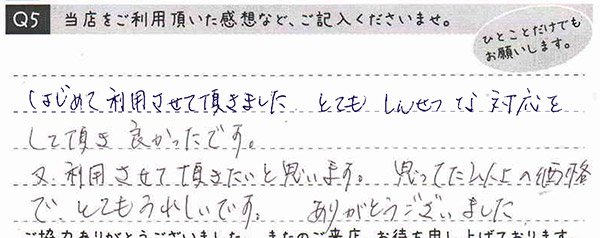 Q5 当店をご利用頂いた感想など、ご記入くださいませ。
ひとことだけでも
お願いします。
はじめて利用させて頂きました とても しんせつな対応を
して頂き良かったです。
又、利用させて頂きたいと思います。 思ってた以上の価格
で、とてもうれしいです。 ありがとうございました
ご協力ありがとうございました。またのご来店、お待ち申し上げております。